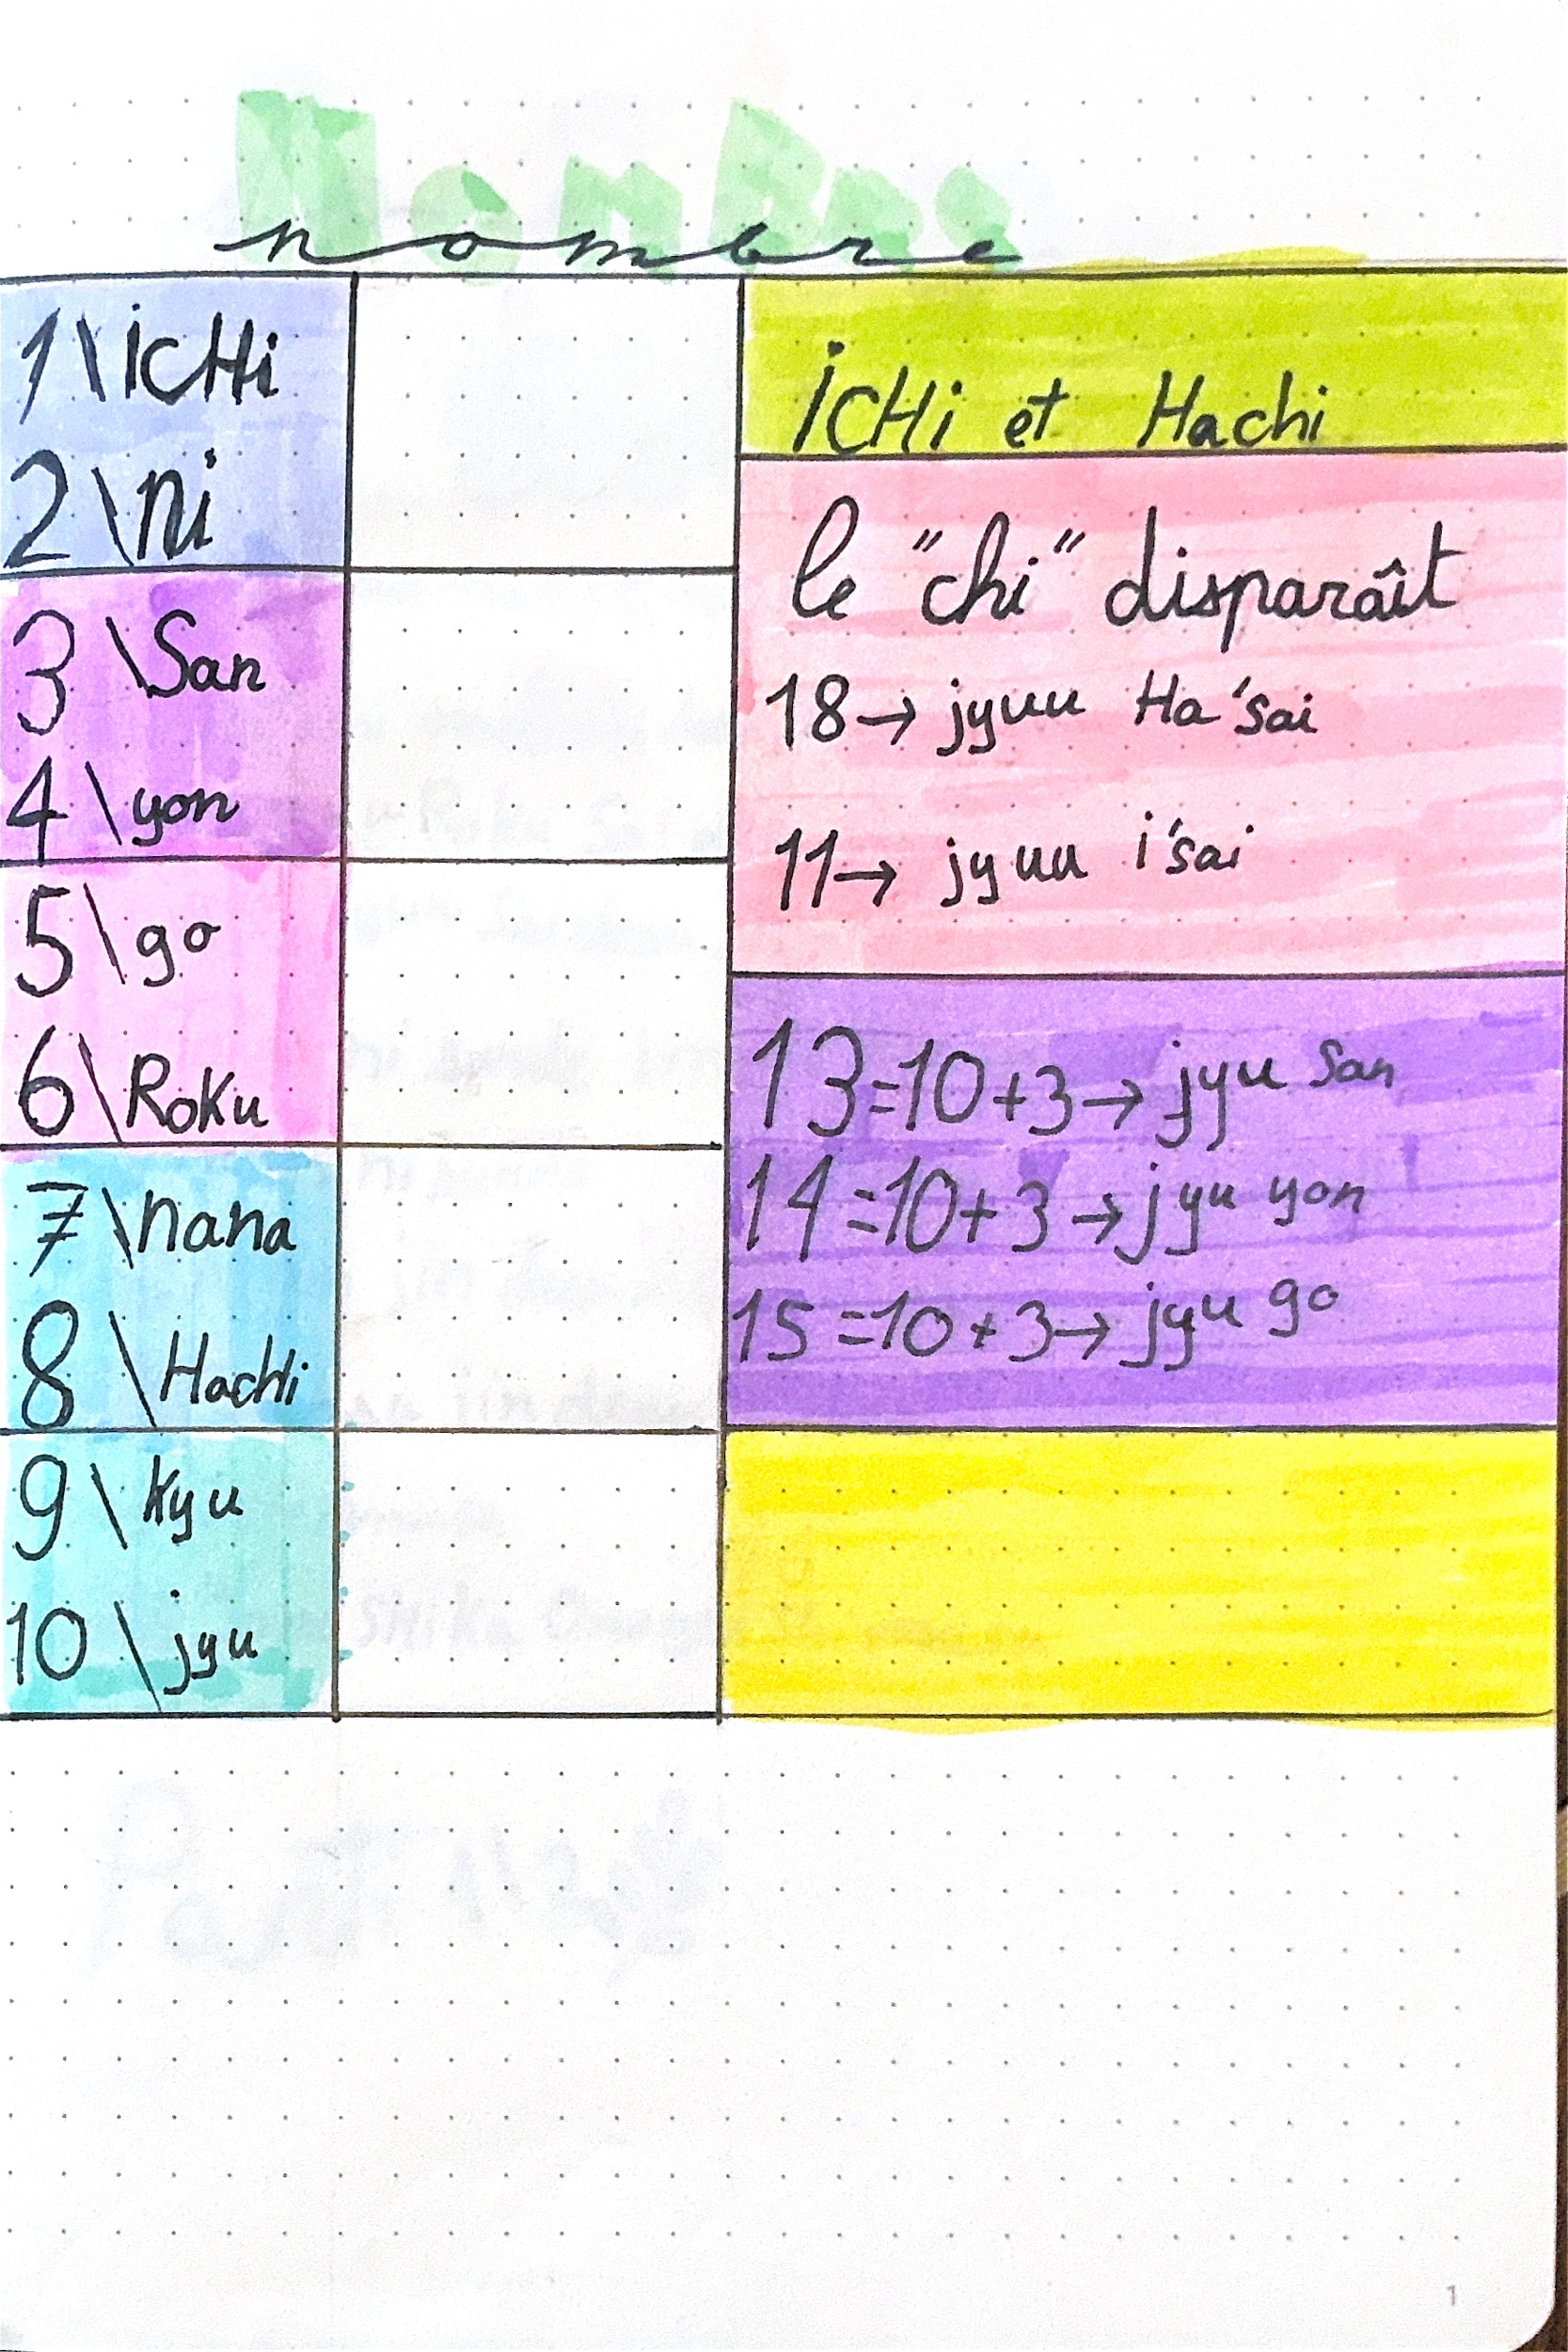 Nombre
nombre
1\ICHi
2\ni
3\San
4\yon
5\go
6\Roku
7\nana
8\HacHi
9\kyu
10\jyu
ICHi et Hachi
le "chi" disparaît
18→ jyuu Ha'sai
11→ jyuu i'sai
13=10+3→ jyu San
14=10+3→ jyu yon
15=10+3→ jyu go
1